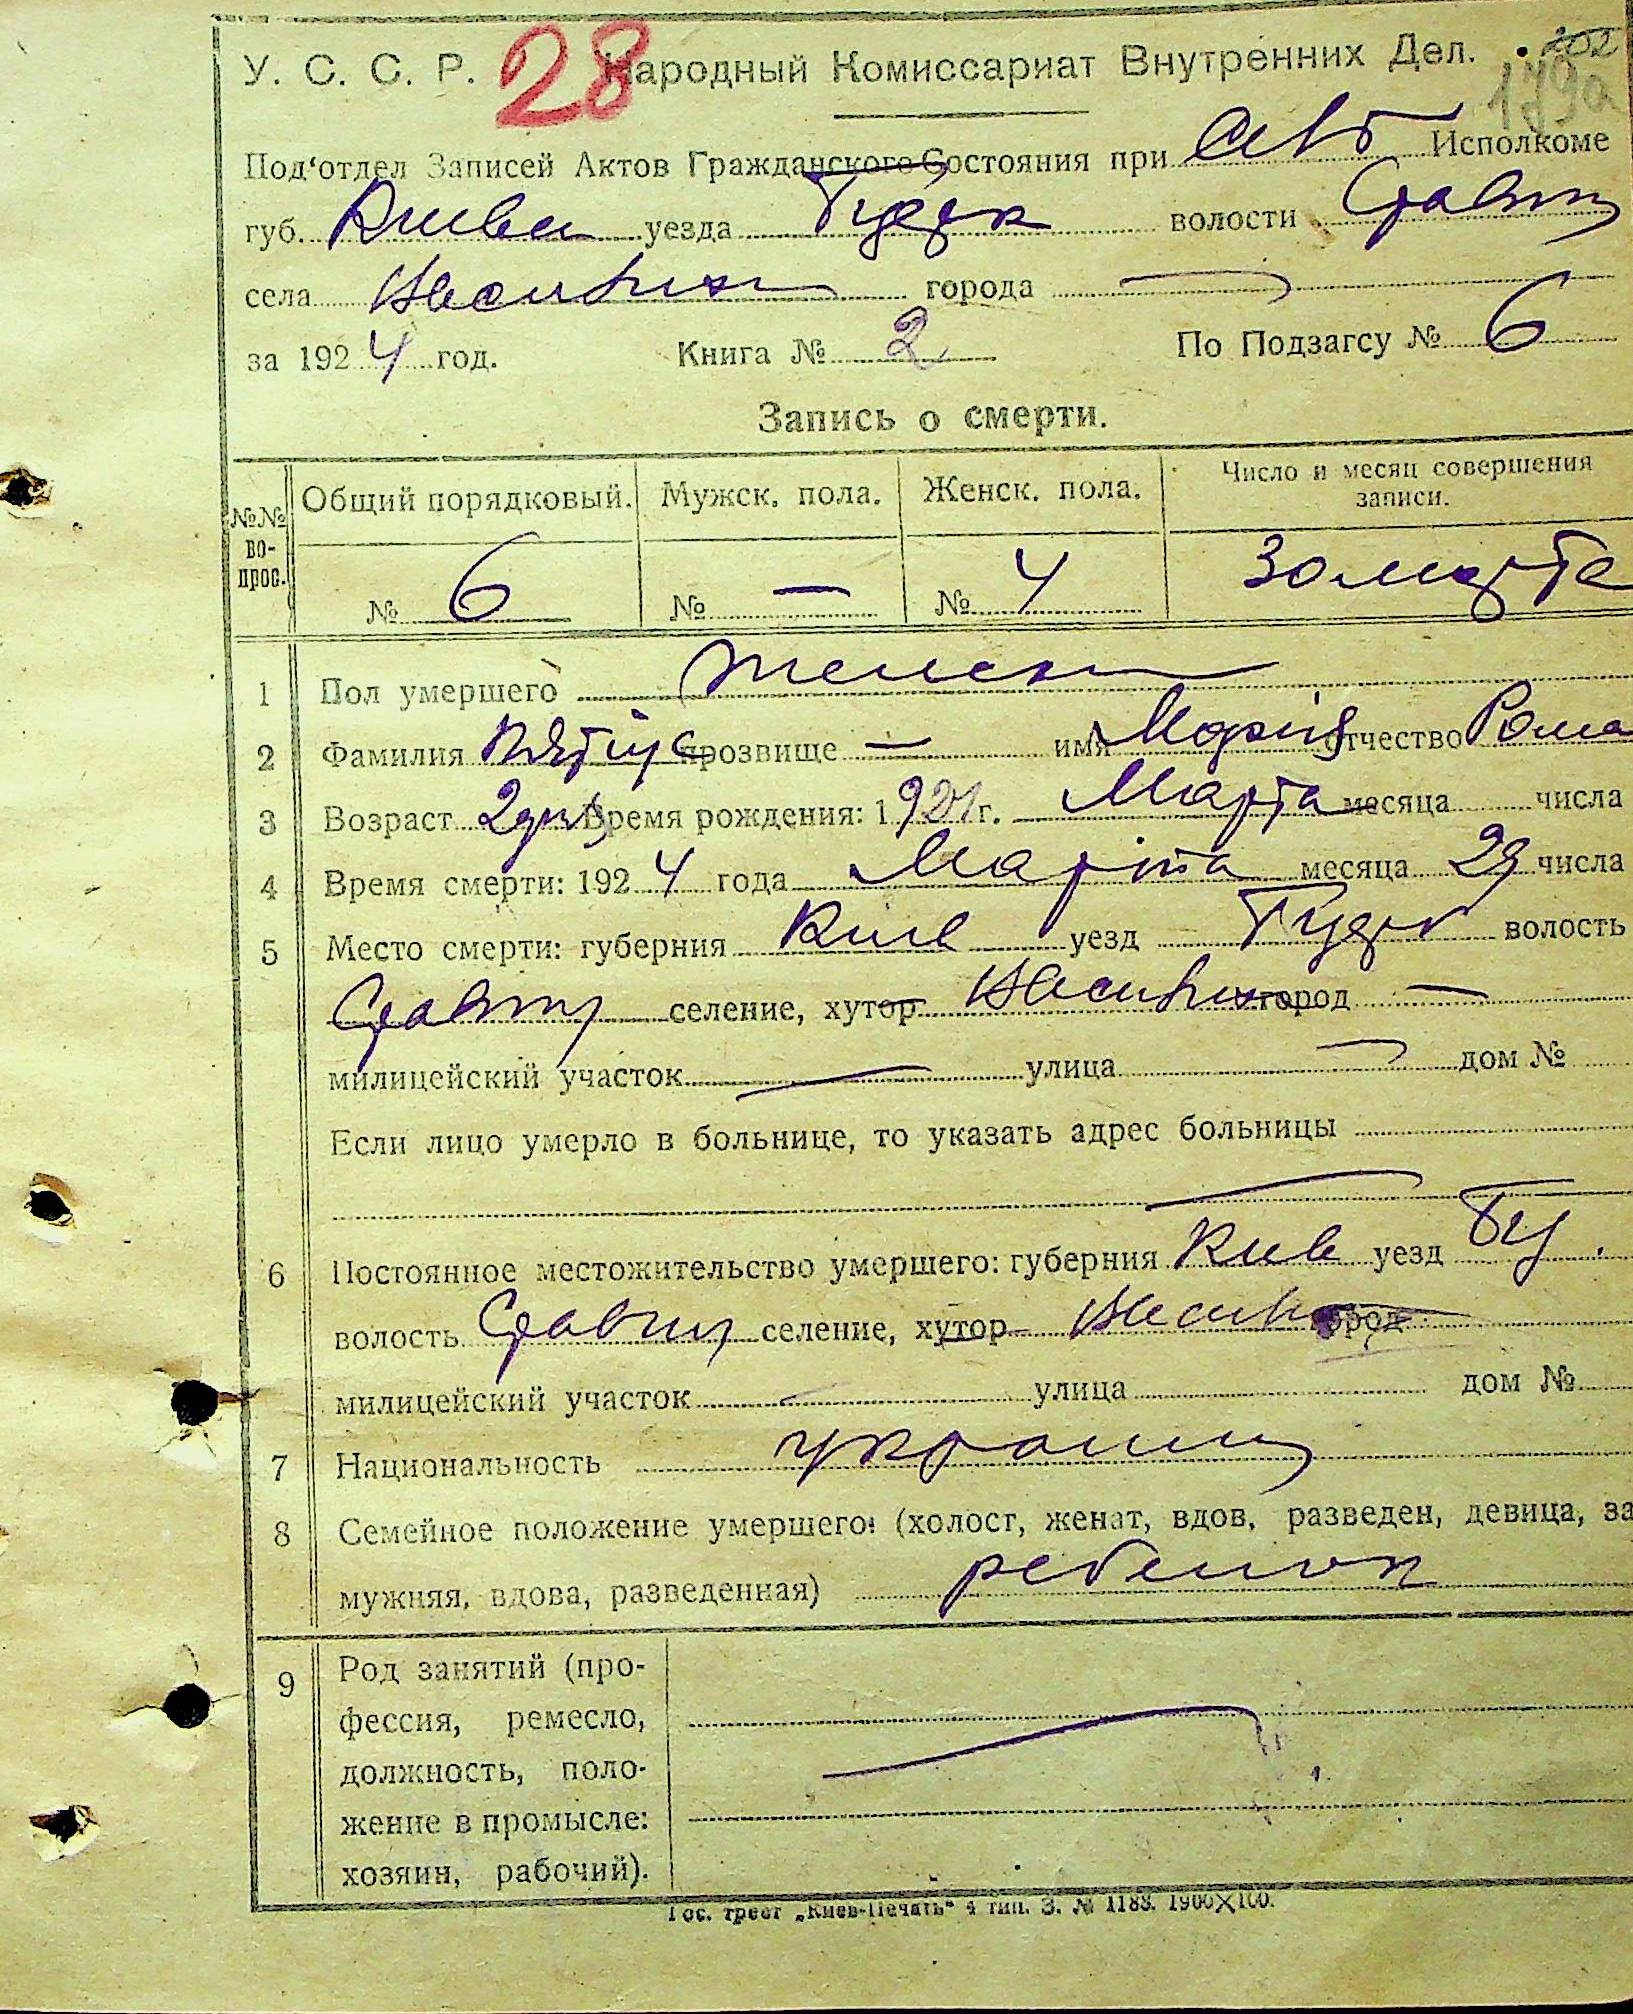 У. С. С. Р. 28 Народный Комиссариат Внутренних Дел. 202
179а
Под‘отдел Записей Актов Гражданского Состояния при Исполкоме
губ. Киев уезда волости
села города —
за 1924 год. Книга № 2 По Подзагсу № 6
Запись о смерти.
№№ во-прос. Общий порядковый. Мужск. пола. Женск. пола. Число и месяц совершения записи.
№ 6 № — № 4 30 марта
1 Пол умершего женск
2 Фамилия прозвище — имя Марія отчество Рома
3 Возраст 2 дня Время рождения: 1924 г. Марта месяца числа
4 Время смерти: 1924 года Марта месяца 29 числа
5 Место смерти: губерния Киев уезд волость
селение, хутор город —
милицейский участок — улица — дом №
Если лицо умерло в больнице, то указать адрес больницы
—
6 Постоянное местожительство умершего: губерния Киев уезд
волость селение, хутор город
милицейский участок — улица дом №
7 Национальность украинц
8 Семейное положение умершего: (холост, женат, вдов, разведен, девица, за
мужняя, вдова, разведенная) ребенок
9 Род занятий (про-
фессия, ремесло,
должность, поло-
жение в промысле:
хозяин, рабочий).
Гос. трест „Киев-Печать“ 4 тип. З. № 1188. 1900×100.